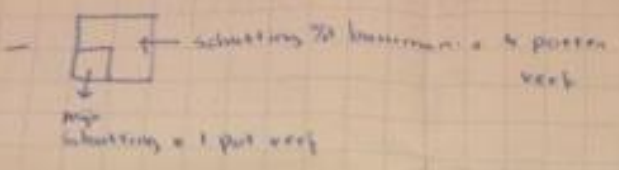 schutting v/d buurman = 4 potten
verf
mijn
schutting = 1 pot verf